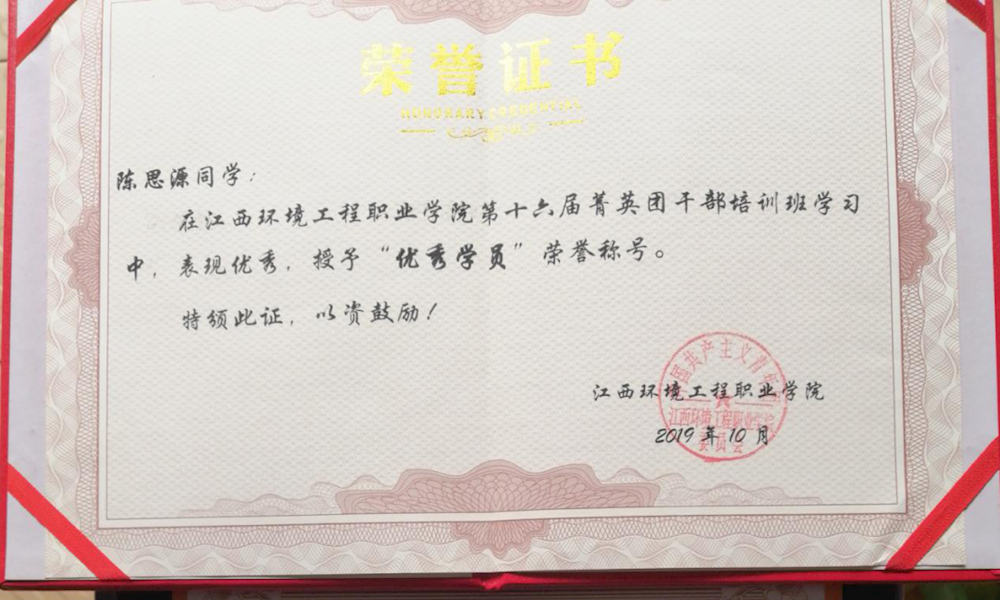 荣誉证书
HONORARY CREDENTIAL
陈思源同学：
在江西环境工程职业学院第十六届菁英团干部培训班学习
中，表现优秀，授予“优秀学员”荣誉称号。
特颁此证，以资鼓励！
国共产主义青年团
江西环境工程职业学院
江西环境工程职业学院
2019年10月
委员会